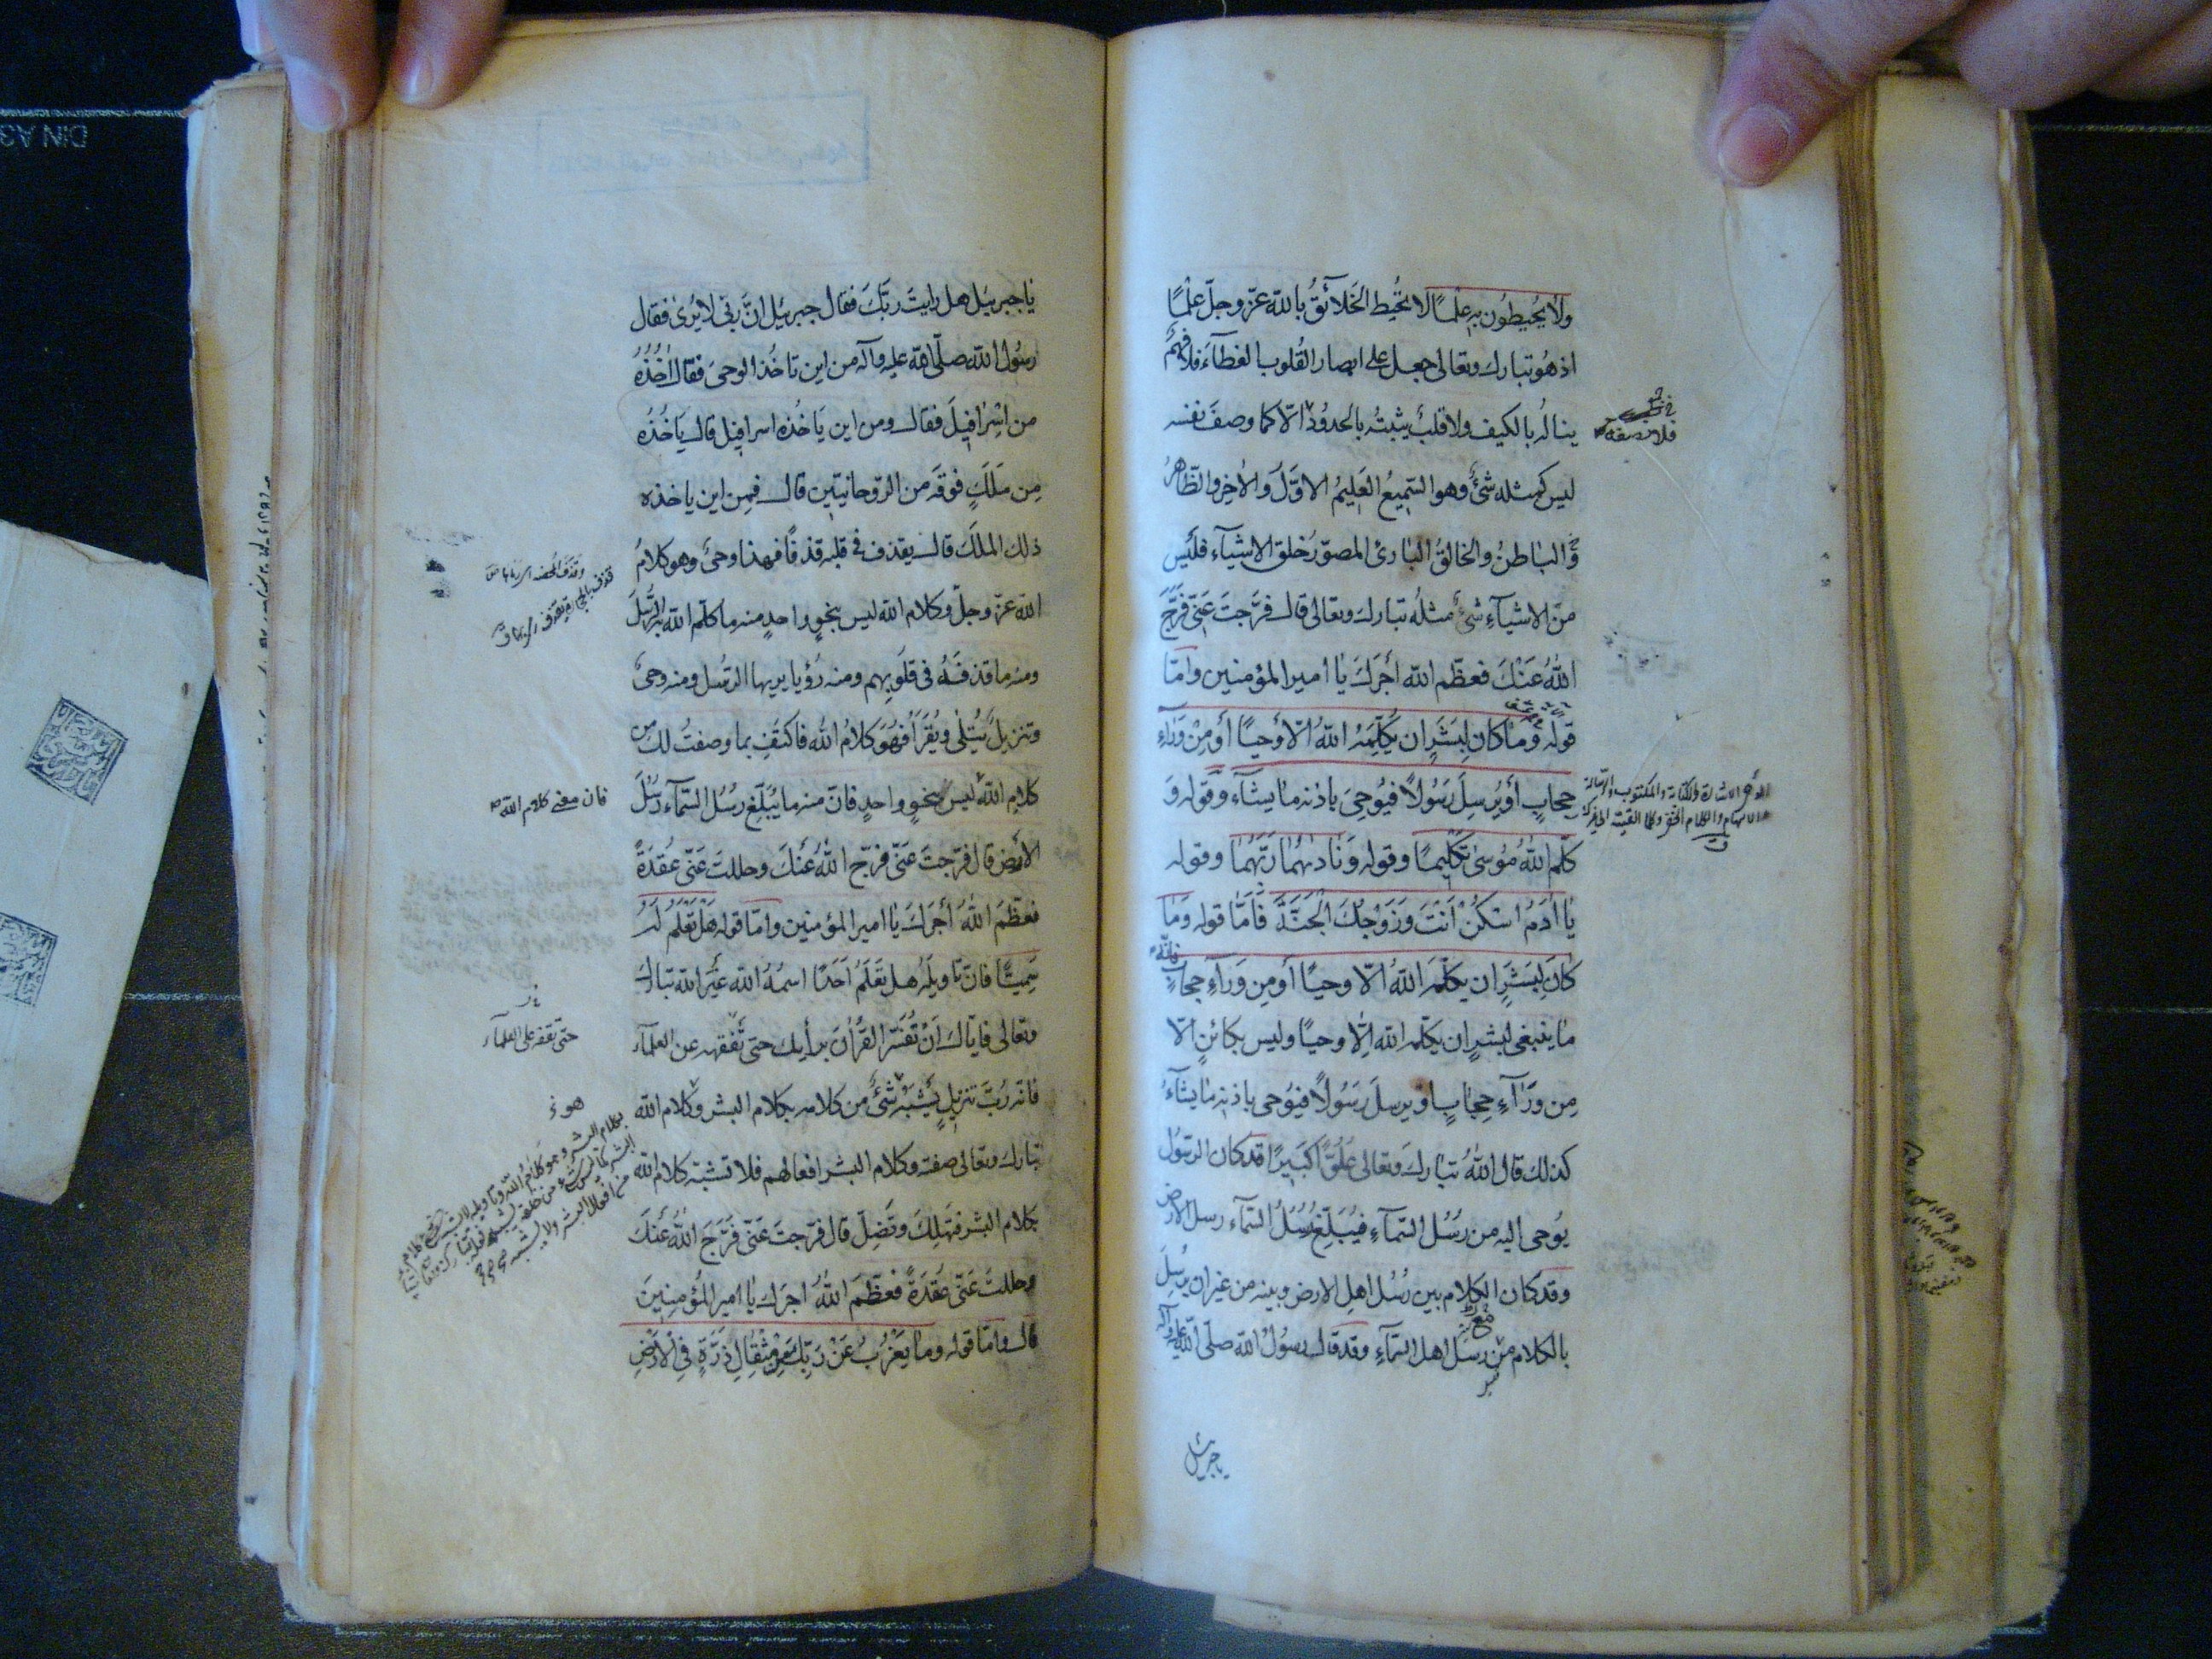 ولا يحيطون به علمًا لا تحيط الخلائق بالله عزّ وجلّ علمًا
اذ هو تبارك وتعالى جعل على ابصار القلوب الغطآء فلا فهم
يناله بالكيف ولا قلب يثبته بالحدود الّا كما وصف نفسه
ليس كمثله شئ وهو السّميع العليم الاوّل والاخر والظّاهر
والباطن والخالق البارئ المصوّر خلق الاشيآء فليس
من الاشيآء شئ مثله تبارك وتعالى قال فرّجت عنّى فرّج
الله عنك فعظّم الله أجرك يا امير المؤمنين وامّا
قوله وما كان لبشر ان يكلّمه الله الّا وحيًا أو من ورآء
حجاب أو يرسل رسولًا فيوحى باذنه ما يشآء وقوله و
كلّم الله موسى تكليمًا وقوله وناداهما ربّهما وقوله
يا ادم اسكن انت وزوجك الجنّة فأمّا قوله وما
كان لبشر ان يكلّمه الله الّا وحيًا أو من ورآء حجاب
ما ينبغى لبشر ان يكلّمه الله الّا وحيًا وليس بكائن الّا
من ورآء حجاب او يرسل رسولًا فيوحى باذنه ما يشآء
كذلك قال الله تبارك وتعالى علوًّا كبيرًا قد كان الرّسول
يوحى اليه من رسل السّمآء فيبلّغ رسل السّمآء رسل الارض
وقد كان الكلام بين رسل اهل الارض وبينه من غير ان يرسل
بالكلام من رسل اهل السّمآء وقد قال رسول الله صلّى الله عليه وآله
يا جبرئيل
فلا تصفه
يا جبرئيل هل رايت ربّك فقال جبرئيل انّ ربّى لا يرى فقال
رسول الله صلّى الله عليه وآله من اين تاخذ الوحى فقال اٰخذه
من اسرافيل فقال ومن اين ياخذه اسرافيل قال ياخذه
من ملك فوقه من الرّوحانيّين قال فمن اين ياخذه
ذلك الملك قال يقذف فى قلبه قذفًا فهذا وحى وهو كلام
الله عزّ وجلّ وكلام الله ليس بنحو واحد منه ما كلّم الله به الرّسل
ومنه ما قذفه فى قلوبهم ومنه رؤيا يريها الرّسل ومنه وحى
وتنزيل يتلى ويقرأ فهو كلام الله فاكتف بما وصفت لك من
كلام الله ليس بنحو واحد فانّ منه ما يبلّغ رسل السّمآء رسل
الأرض قال فرّجت عنّى فرّج الله عنك وحللت عنّى عقدة
فعظّم الله أجرك يا امير المؤمنين وامّا قوله هل تعلم له
سميًّا فانّ تاويله هل تعلم احدًا اسمه الله غير الله تبارك
وتعالى فايّاك ان تفسّر القرآن برأيك حتى تفقهه عن العلمآء
فانه ربّ تنزيل يشبه شئ من كلامه بكلام البشر وكلام الله
تبارك وتعالى صفته وكلام البشر افعالهم فلا تشبّه كلام الله
بكلام البشر فتهلك وتضلّ قال فرّجت عنّى فرّج الله عنك
وحللت عنّى عقدة فعظّم الله اجرك يا امير المؤمنين
قال وامّا قوله وما يعزب عن ربّك من مثقال ذرّة فى الأرض
فان معنى كلام الله
حتى تفقه على العلمآء
DIN A3